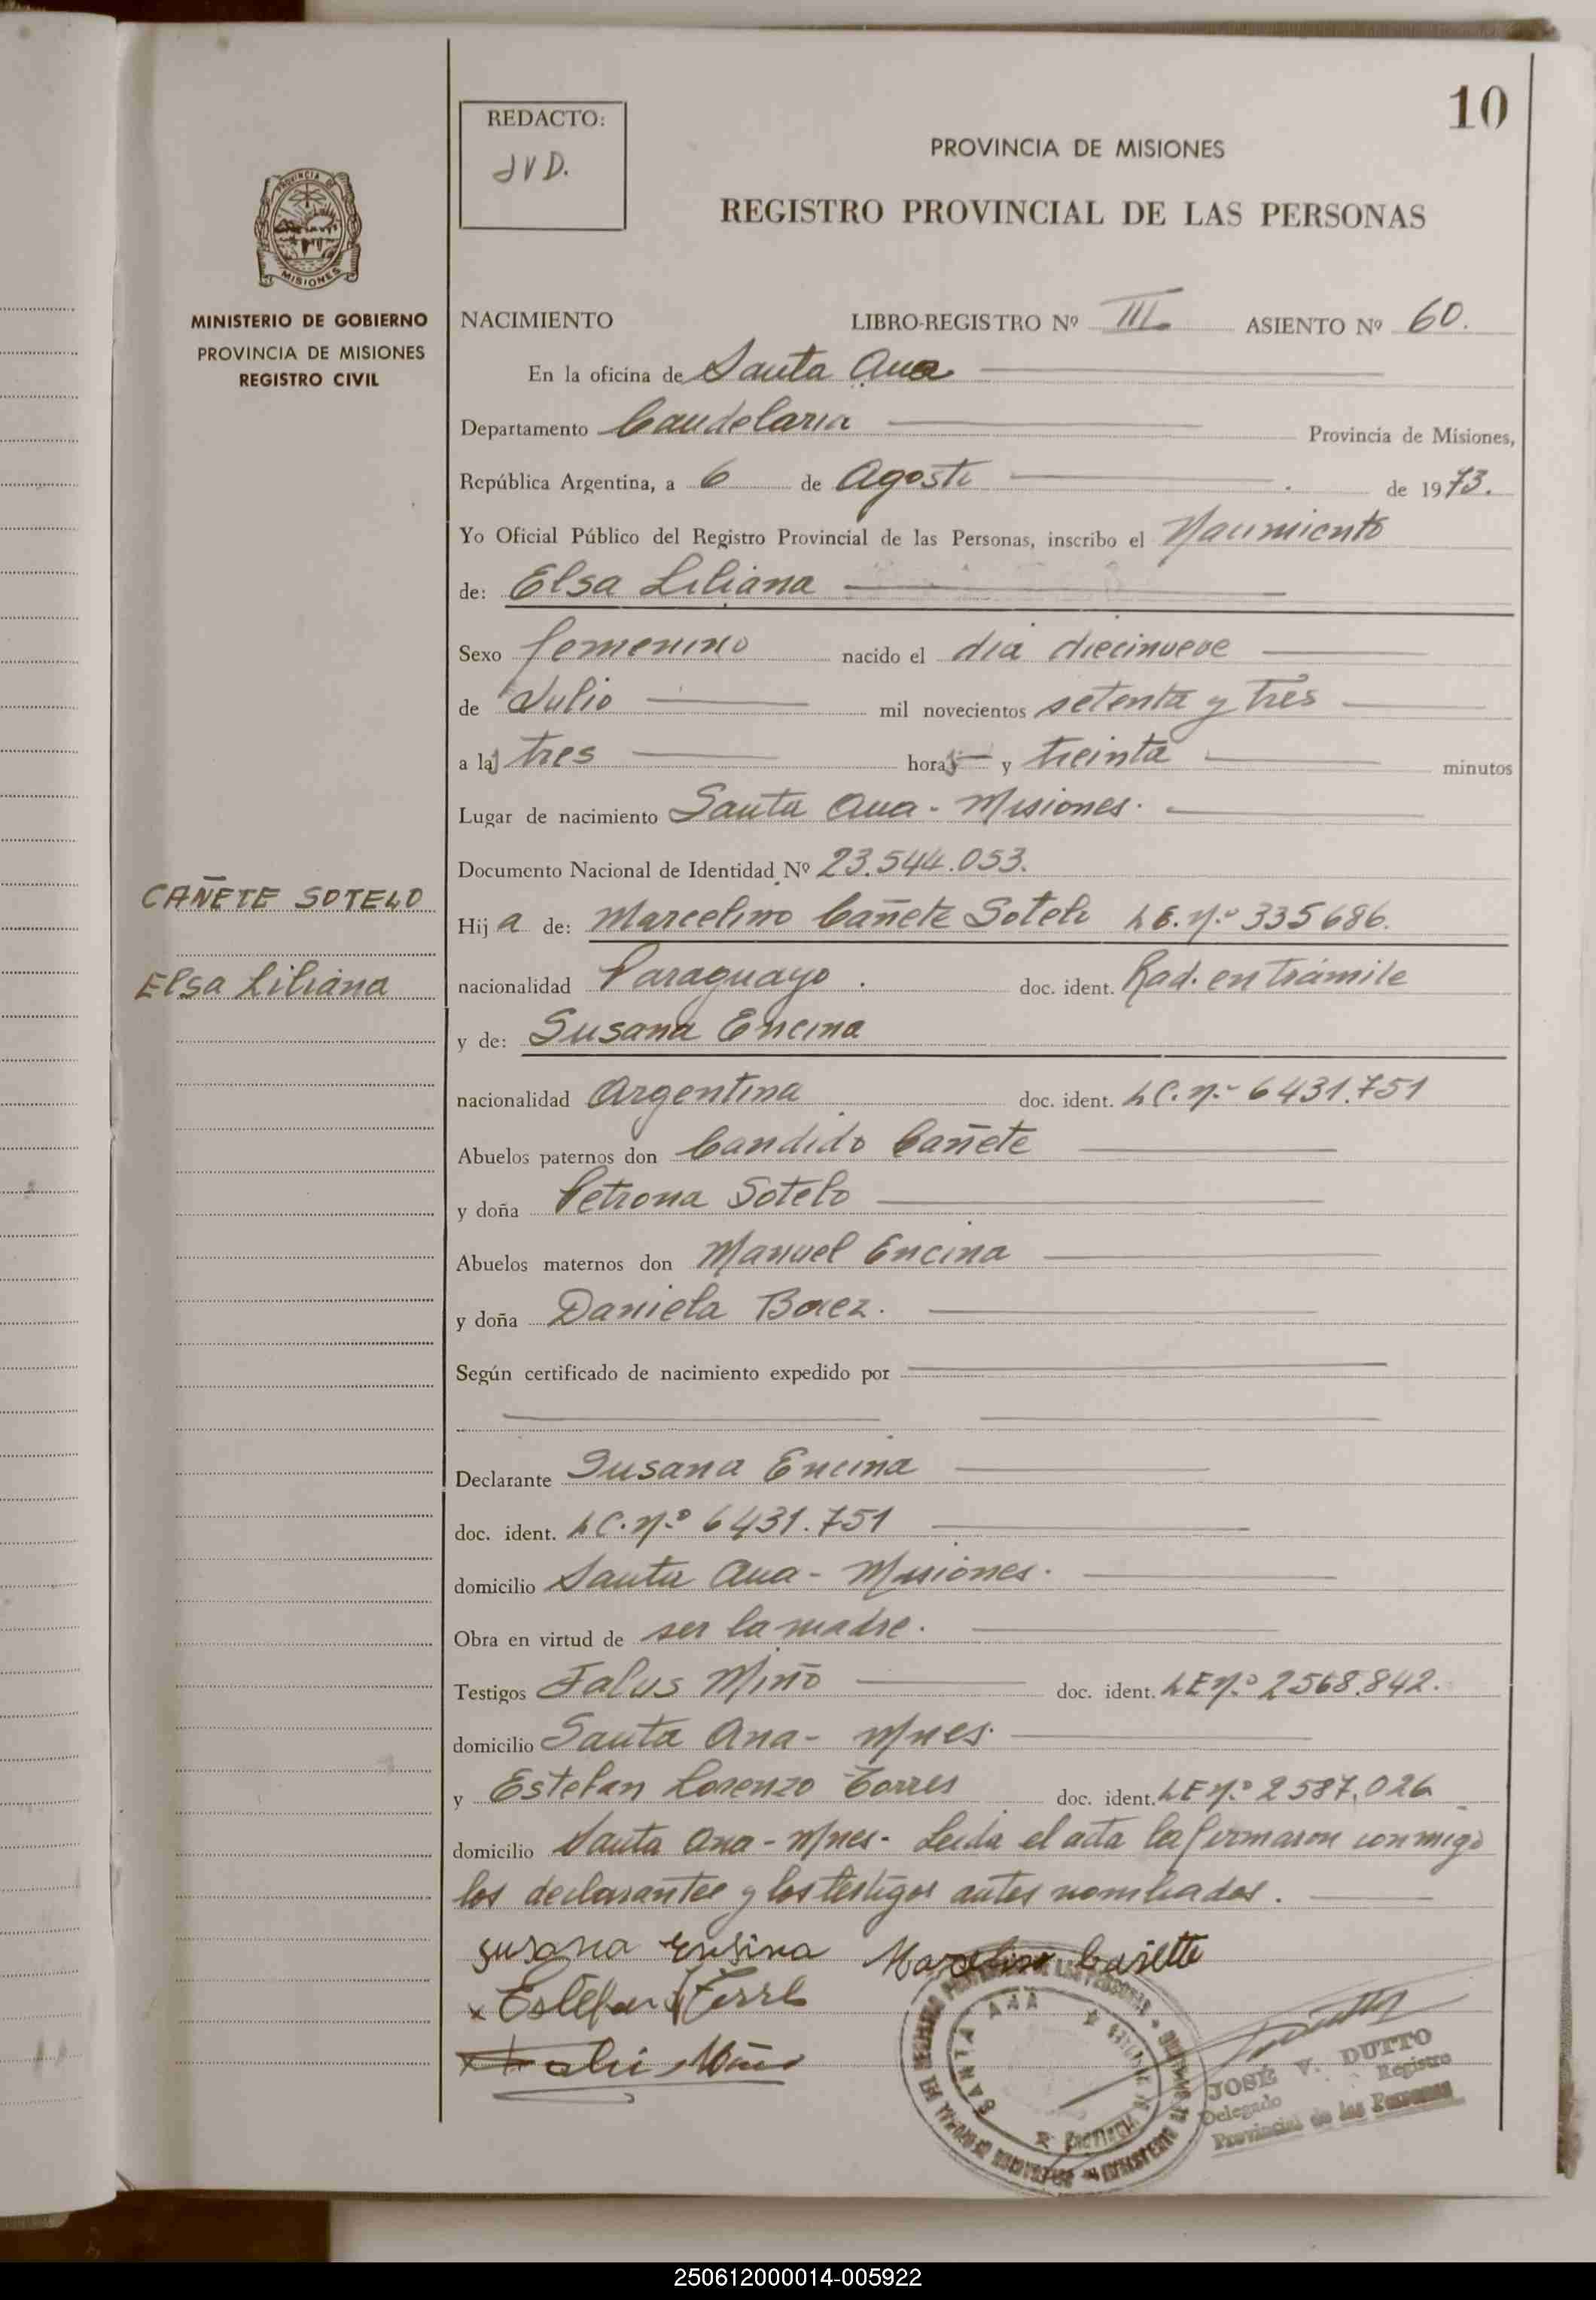 10
REDACTO:
JVD.
PROVINCIA DE MISIONES
REGISTRO PROVINCIAL DE LAS PERSONAS
PROVINCIA DE
MISIONES
MINISTERIO DE GOBIERNO
PROVINCIA DE MISIONES
REGISTRO CIVIL
NACIMIENTO LIBRO-REGISTRO Nº III ASIENTO Nº 60.
En la oficina de Santa Ana
Departamento Candelaria Provincia de Misiones,
República Argentina, a 6 de Agosto de 1973.
Yo Oficial Público del Registro Provincial de las Personas, inscribo el Nacimiento
de: Elsa Liliana
Sexo femenino nacido el dia diecinueve
de Julio mil novecientos setenta y tres
a las tres horas y treinta minutos
Lugar de nacimiento Santa Ana - Misiones.
Documento Nacional de Identidad Nº 23.544.053.
CAÑETE SOTELO
Hij a de: Marcelino Cañete Sotelo L.E. Nº 335686.
Elsa Liliana
nacionalidad Paraguayo. doc. ident. Rad. en trámite
y de: Susana Encina
nacionalidad Argentina doc. ident. LC. Nº 6431.751
Abuelos paternos don Candido Cañete
y doña Petrona Sotelo
Abuelos maternos don Manuel Encina
y doña Daniela Baez.
Según certificado de nacimiento expedido por
Declarante Susana Encina
doc. ident. LC. Nº 6431.751
domicilio Santa Ana - Misiones.
Obra en virtud de ser la madre.
Testigos Miño doc. ident. LE Nº 2568.842.
domicilio Santa Ana - Mnes.
y Estefan Lorenzo Torres doc. ident. LE Nº 2587.026
domicilio Santa Ana - Mnes - Leida el acta la firmaron conmigo
los declarantes y los testigos antes nombrados.
susana ensina Marcelino Cañette
x Estefan
Miño
SANTA ANA
JOSÉ V. DUTTO
Delegado Registro
Provincial de las Personas
250612000014-005922